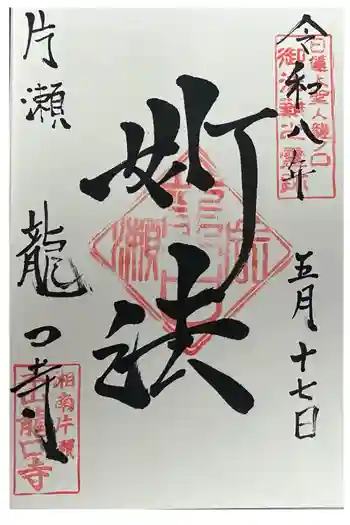 令和八年
五月十七日
日蓮上人龍ノ口
御法難之霊跡
妙法
片瀬
龍口寺
湘南片瀬
龍口寺